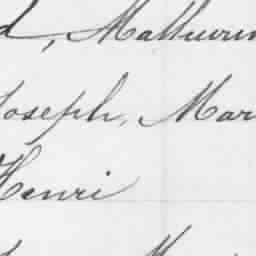 d, Mathurin
Joseph, Mar
Henri